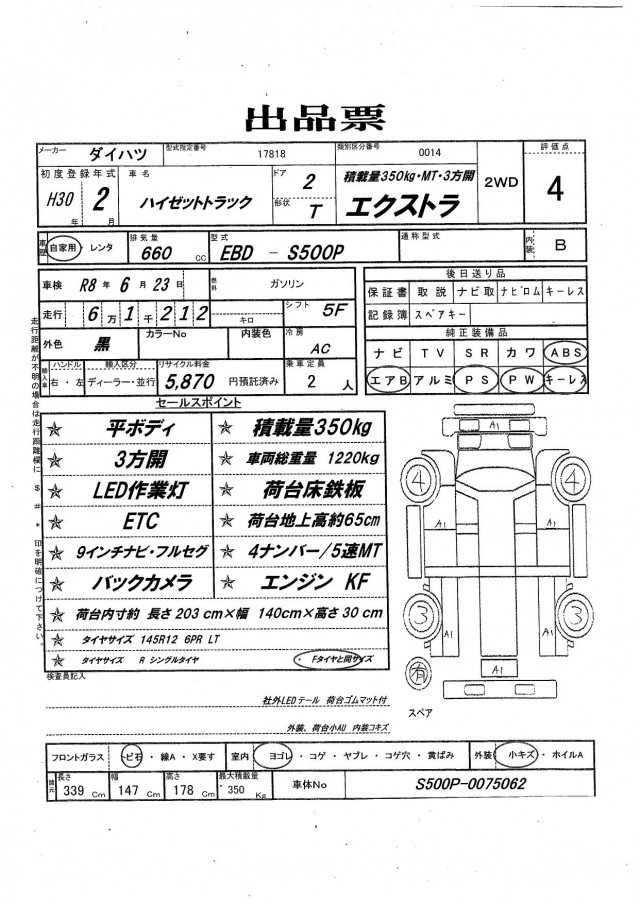 出品票
メーカー ダイハツ 型式指定番号 17818 類別区分番号 0014 評価点
初度登録年式 車名 ドア 2 積載量350kg・MT・3方開 2WD 4
H30年 2月 ハイゼットトラック 形状 T エクストラ
車歴 自家用・レンタ 排気量 660 cc 型式 EBD - S500P 通称型式 内装 B
車検 R8年 6月 23日 燃料 ガソリン 後日送り品
保証書 取説 ナビ取 ナビロム キーレス
走行 6万1千212 キロ シフト 5F 記録簿 スペアキー
外色 黒 カラーNo 内装色 冷房 AC 純正装備品
ナビ TV SR カワ ABS
輸入車 ハンドル 右・左 輸入区分 ディーラー・並行 リサイクル料金 5,870 円預託済み 乗車定員 2人 エアB アルミ PS PW キーレス
走行距離が不明の場合は走行距離欄に $ # * 印を明確につけて下さい。
セールスポイント
☆ 平ボディ ☆ 積載量350kg
☆ 3方開 ☆ 車両総重量 1220kg
☆ LED作業灯 ☆ 荷台床鉄板
☆ ETC ☆ 荷台地上高約65cm
☆ 9インチナビ・フルセグ ☆ 4ナンバー/5速MT
☆ バックカメラ ☆ エンジン KF
☆ 荷台内寸約 長さ 203 cm×幅 140cm×高さ 30 cm
☆ タイヤサイズ 145R12 6PR LT
☆ タイヤサイズ R シングルタイヤ ・Fタイヤと同サイズ
A1
4 4
A1 A1
3 3
A1 A1
A1
有
スペア
検査員記入
社外LEDテール 荷台ゴムマット付
外装、荷台小AU 内装コキズ
フロントガラス トビ石・線A・X要す 室内 ヨゴレ・コゲ・ヤブレ・コゲ穴・黄ばみ 外装 小キズ・ホイルA
長さ 339 Cm 幅 147 Cm 高さ 178 Cm 最大積載量 350 Kg 車体No S500P-0075062